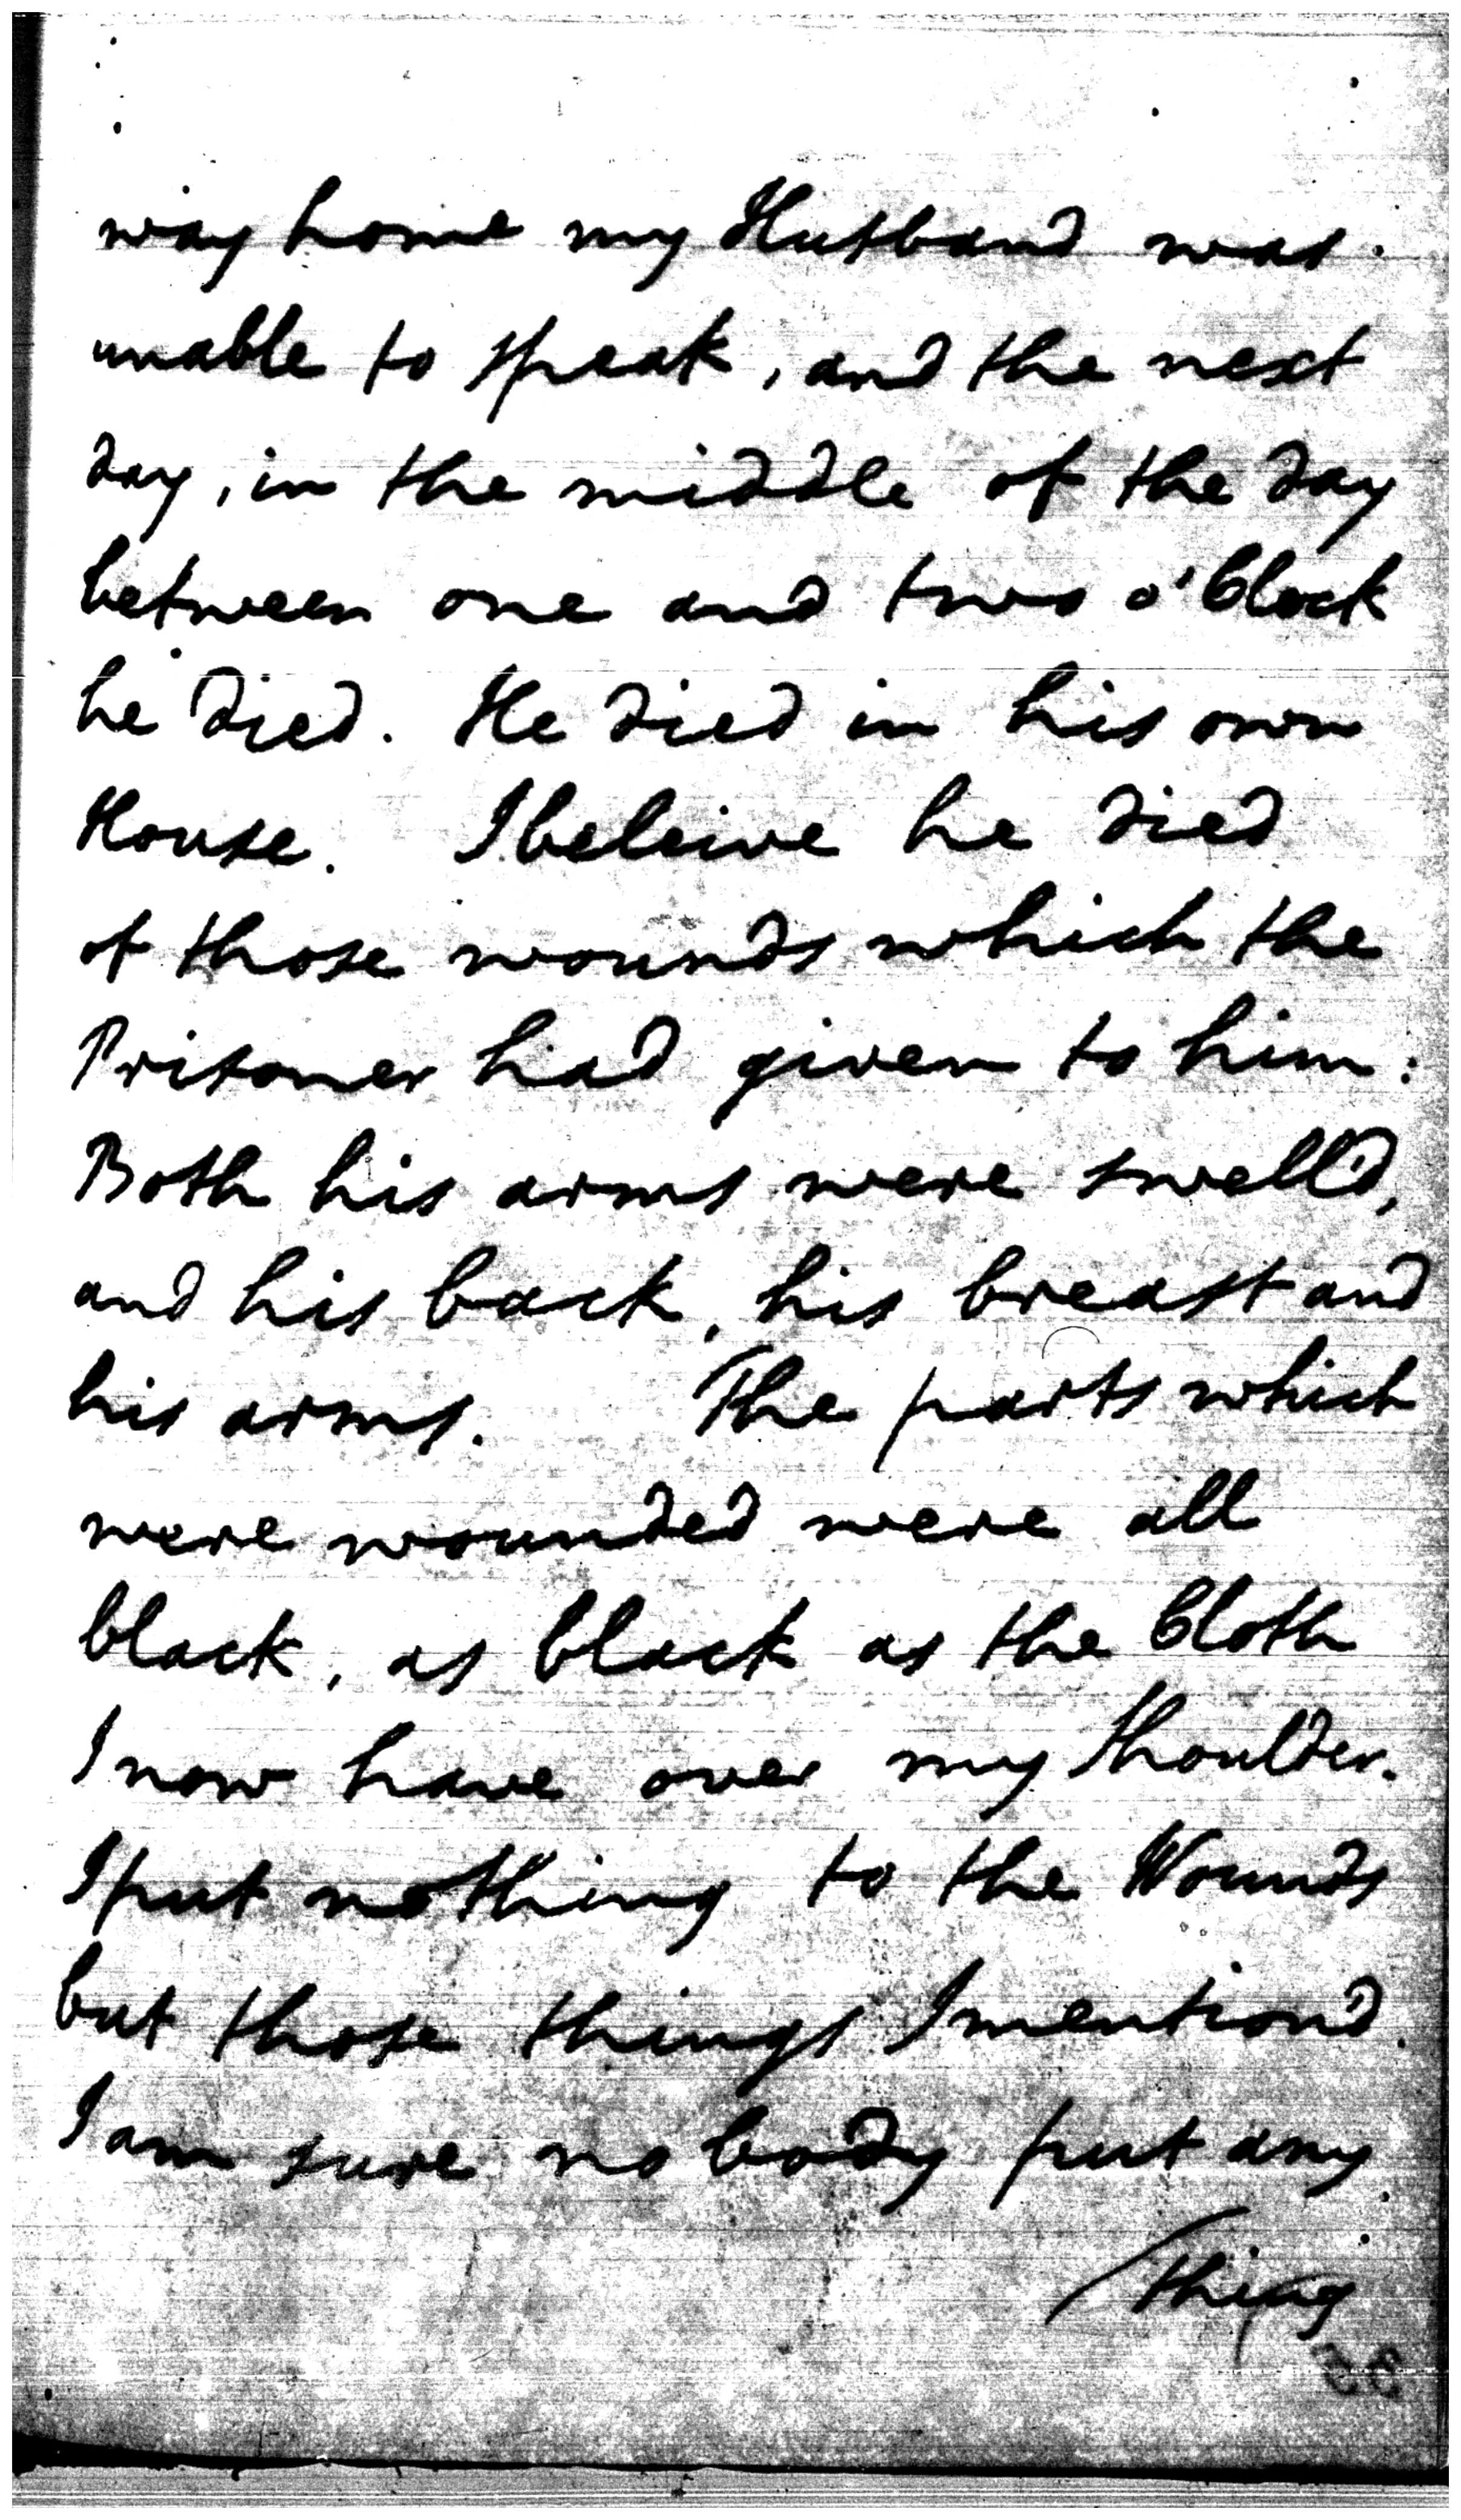 way home my Husband was
unable to speak, and the next
day, in the middle of the day
between one and two o'Clock
he died. He died in his own
House. I beleive he died
of those wounds which the
Prisoner had given to him:
Both his arms were swell'd,
and his back, his breast and
his arms. The parts which
were wounded were all
black, as black as the Cloth
I now have over my Shoulder.
I put nothing to the Wounds
but those things I mention'd.
I am sure no body put any
thing
35